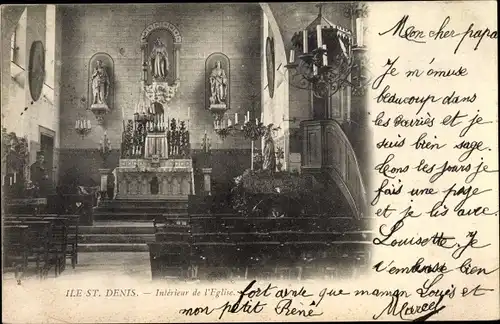 Mon cher papa
Je m'amuse
beaucoup dans
les écuries et je
suis bien sage.
Tous les jours je
fais une page
et je lis avec
Louisette. Je
t'embrasse bien
fort ainsi que maman Louis et
mon petit René Marcel
ILE ST. DENIS. — Intérieur de l'Eglise.